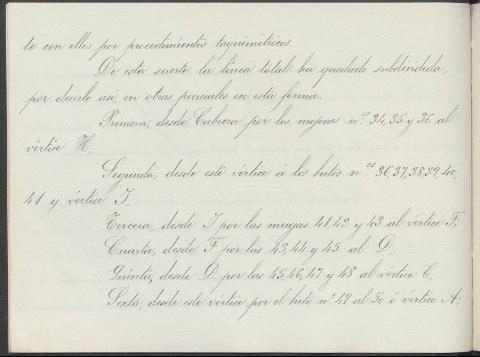 to con ellos por procedimientos taquimétricos
De esta suerte, la línea total ha quedado subdividida,
por decirlo así, en otras parciales en esta forma.
Primera, desde Cabrera por los mojones n.os 34, 35 y 36 al
vértice H.
Segunda, desde este vértice á los hitos n.os 36, 37, 38, 39, 40,
41 y vértice I.
Tercera, desde I por las mugas 41, 42 y 43 al vértice F;
Cuarta, desde F por las 43, 44 y 45 al D.
Quinta, desde D por las 45, 46, 47 y 48 al vértice C,
Sexta, desde este vértice por el hito n.o 49 al 50 ó vértice A;